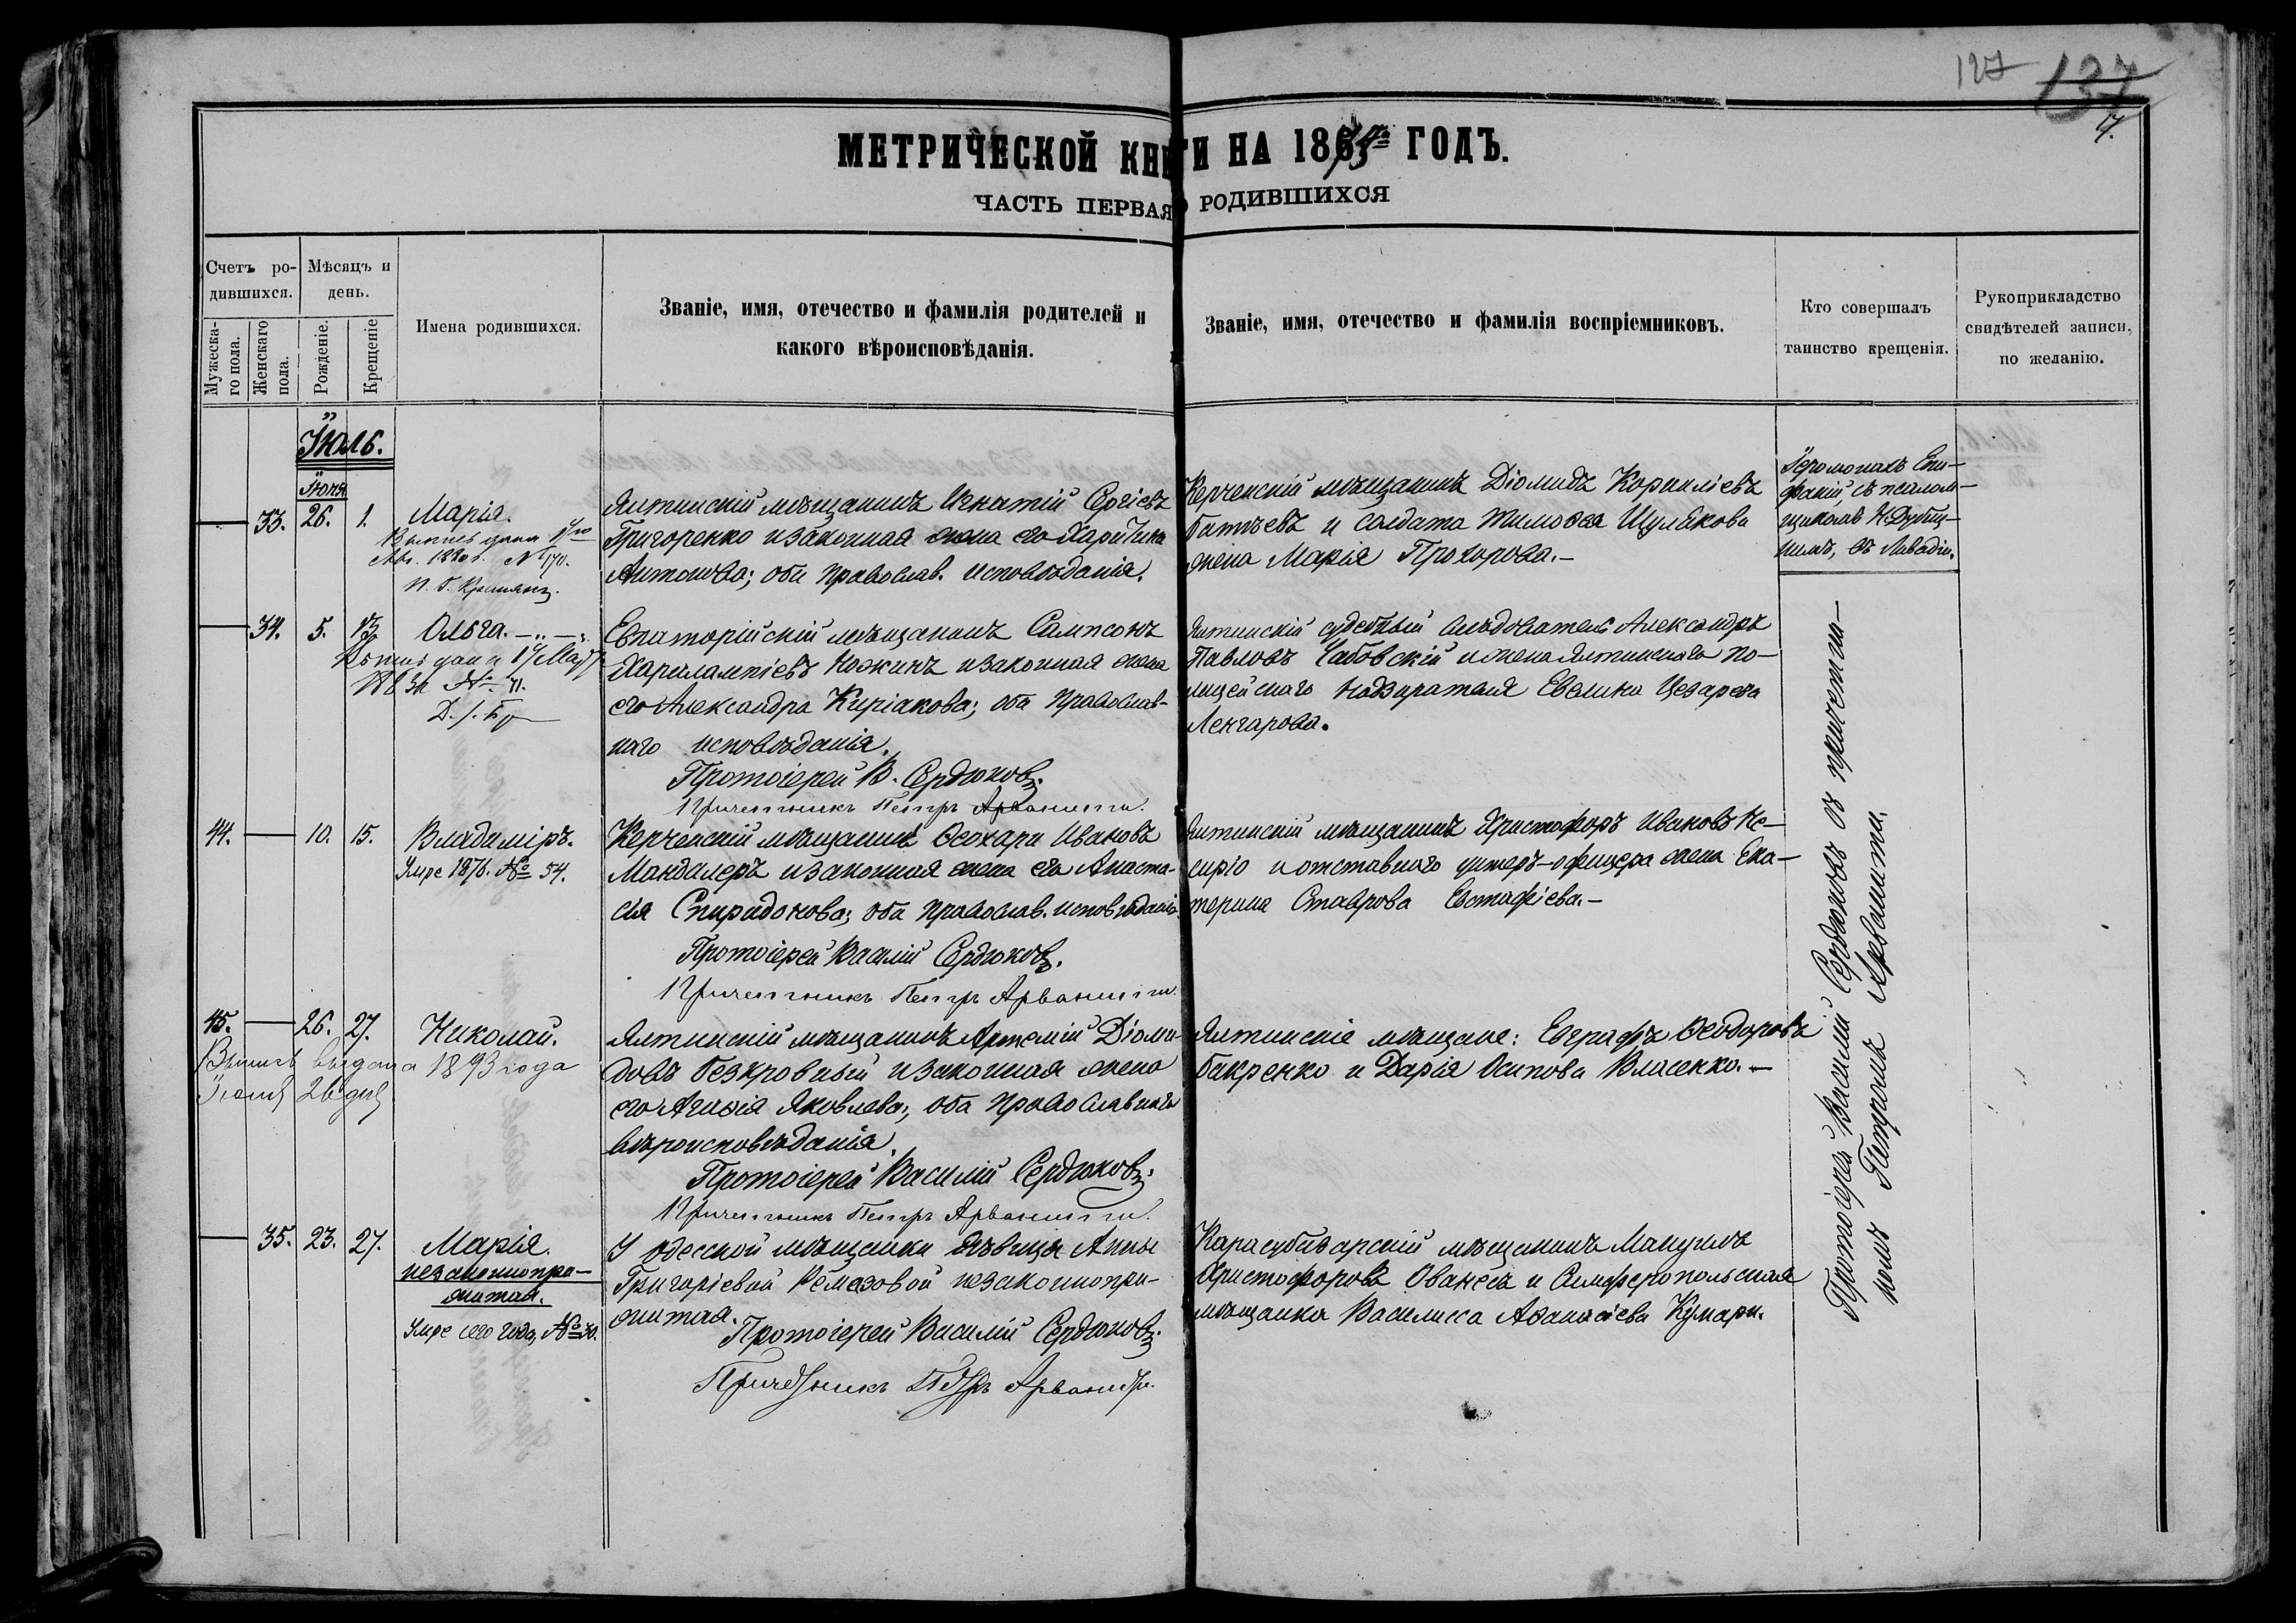 127 137
7.
МЕТРИЧЕСКОЙ КНИГИ НА 1875го ГОДЪ.
ЧАСТЬ ПЕРВАЯ О РОДИВШИХСЯ
Счетъ ро-
дившихся.
Мужеска-
го пола.
Женскаго
пола.
Мѣсяцъ и
день.
Рожденіе.
Крещеніе
Имена родившихся.
Званіе, имя, отечество и фамилія родителей и
какого вѣроисповѣданія.
Званіе, имя, отечество и фамилія воспріемниковъ.
Кто совершалъ
таинство крещенія.
Рукоприкладство
свидѣтелей записи,
по желанію.
Іюль.
Іюня
33. 26. 1. Марія.
Выпись дана
1880 г. № 170.
Ялтинскій мѣщанинъ Игнатій Сергіевъ
Григоренко и законная жена его Харитина
Антонова; оба православ. исповѣданія.
Керченскій мѣщанинъ Діомидъ Корниліевъ
и солдата Тимоѳея Щулякова
жена Марія Прохорова.—
Іеромонахъ Епи-
фаній, съ псалом-
щикомъ Н.
въ Ливадіи.
34. 5. 13. Ольга.
Выпись дана 17 Мар
№ 71.
Евпаторійскій мѣщанинъ Сампсонъ
Харалампіевъ Южинъ и законная жена
его Александра Киріакова; оба православ-
наго исповѣданія.
Протоіерей В. Сердюковъ.
Причетникъ Петръ Арванити.
Ялтинскій судебный слѣдователь Александръ
Павловъ Чабовскій и жена Ялтинскаго по-
лицейскаго надзирателя Евелина Цезарева
Ленгарова.
44. 10. 15. Владиміръ.
Умре 1876. № 54.
Керченскій мѣщанинъ Ѳеохари Ивановъ
Мандалеръ и законная жена его Анаста-
сія Спиридонова; оба православ. исповѣданія.
Протоіерей Василій Сердюковъ.
Причетникъ Петръ Арванити.
Ялтинскій мѣщанинъ Христофоръ Ивановъ Ке-
сирio и отставнаго унтеръ-офицера жена Ека-
терина Ставрова Евстафіева.—
45. 26. 27. Николай.
Выпись выдана 1893 года
Іюня 26 дня
Ялтинскій мѣщанинъ Артемій Діоми-
довъ Безкровный и законная жена
его Агаѳія Яковлева; оба православнаго
вѣроисповѣданія.
Протоіерей Василій Сердюковъ.
Причетникъ Петръ Арванити.
Ялтинскіе мѣщане: Евграфъ Ѳеодоровъ
Бакренко и Дарія Осипова Власенко.—
35. 23. 27. Марія.
незаконнопри-
житая.
Умре сего года, № 30.
У одесской мѣщанки дѣвицы Анны
Григоріевой Ремезовой незаконнопри-
житая.
Протоіерей Василій Сердюковъ.
Причетникъ Петръ Арванити.
Карасубазарскій мѣщанинъ Мануилъ
Христофоровъ Ованесъ и Симферопольская
мѣщанка Василисса Аѳанасіева Кумари.
Протоіерей Василій Сердюковъ съ причетни-
комъ Петромъ Арванити.